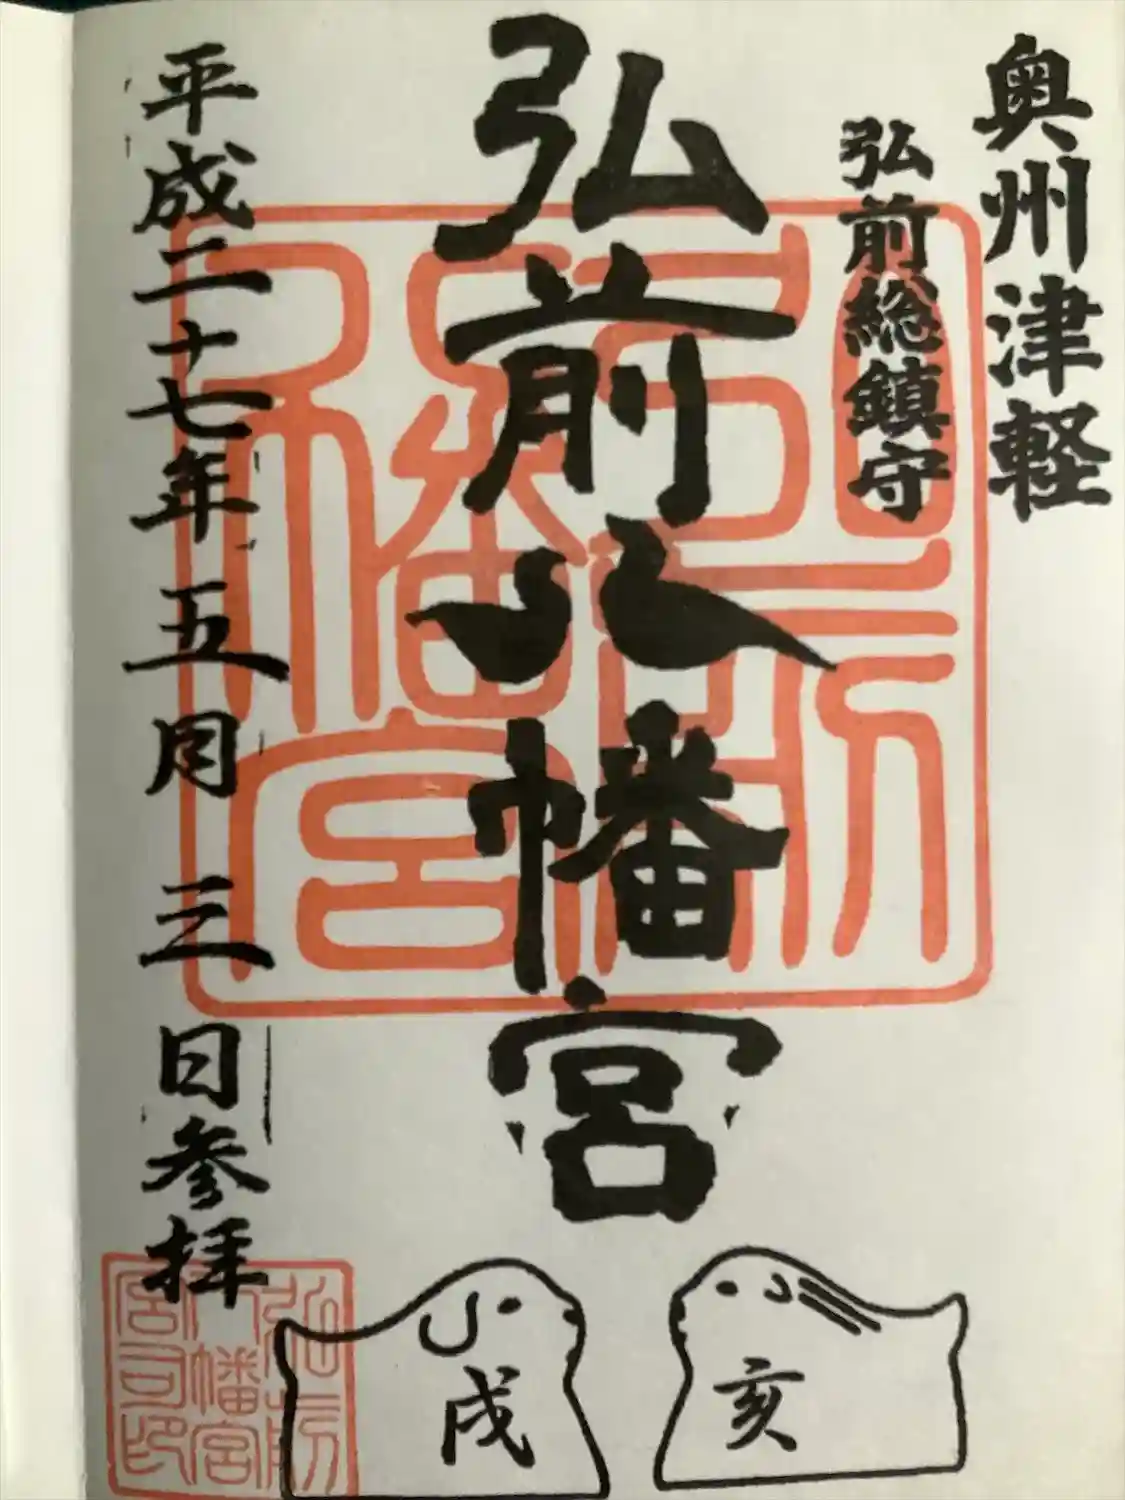 奥州津軽
弘前総鎮守
弘前八幡宮
平成二十七年五月三日参拝
弘前八幡宮
弘前八幡宮宮司印
戌
亥